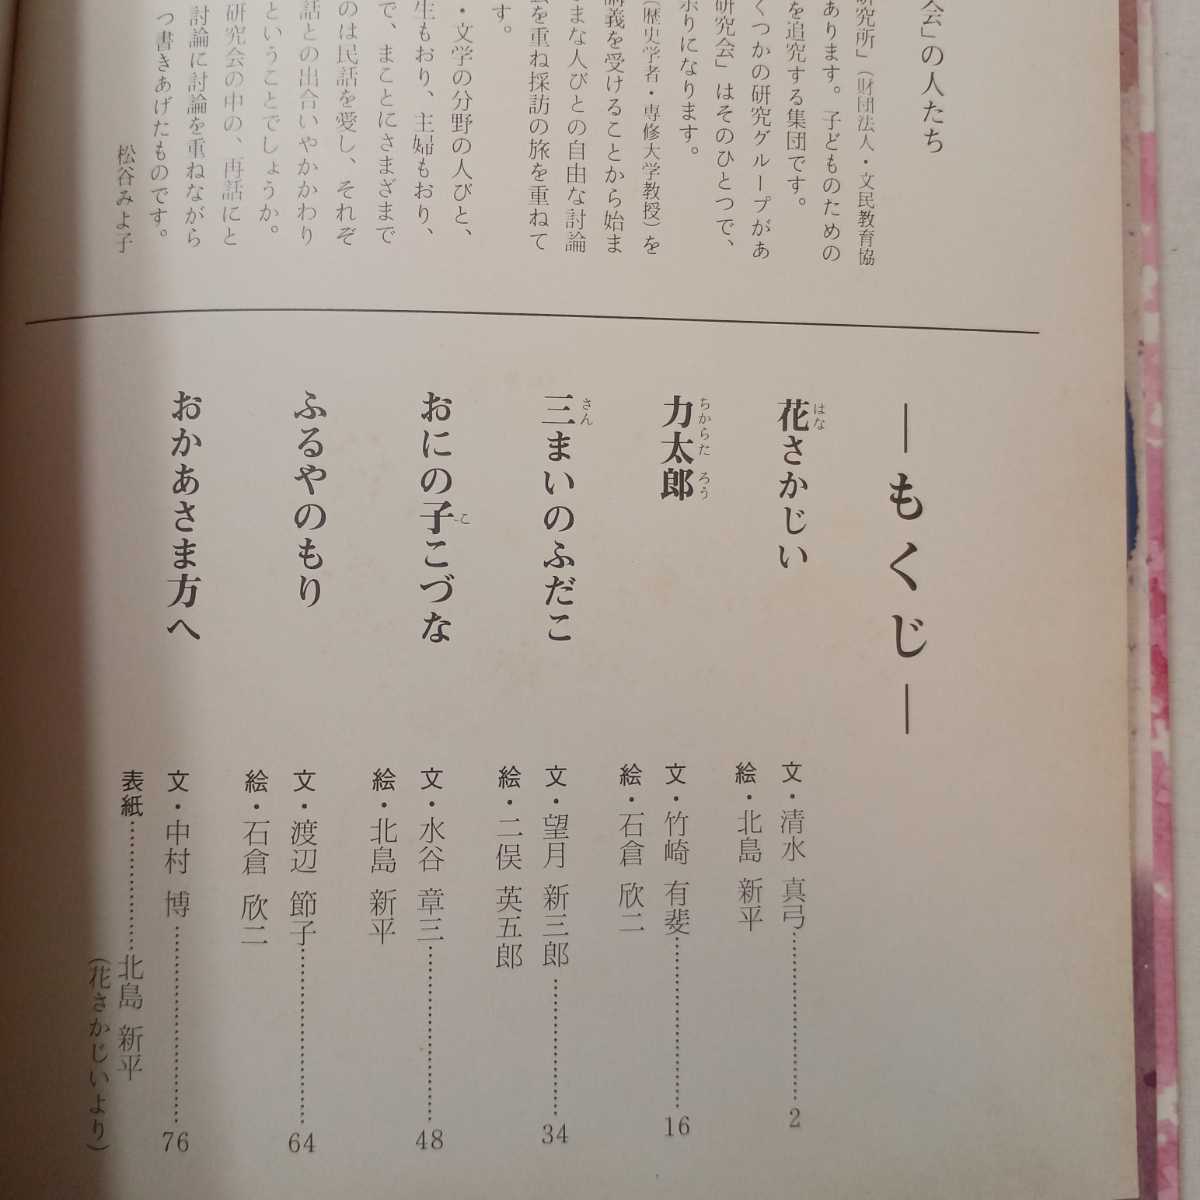 会」の人たち
研究所」（財団法人・文民教育協
あります。子どものための
を追究する集団です。
くつかの研究グループがあ
研究会」はそのひとつで、
余りになります。
（歴史学者・専修大学教授）を
講義を受けることから始ま
まな人びとの自由な討論
会を重ね採訪の旅を重ねて
す。
・文学の分野の人びと、
生もおり、主婦もおり、
で、まことにさまざまで
のは民話を愛し、それぞ
話との出合いやかかわり
ということでしょうか。
研究会の中の、再話にと
討論に討論を重ねながら
つ書きあげたものです。
松谷みよ子
―もくじ―
花さかじい
はな
文・清水 真弓……………2
絵・北島 新平
力太郎
ちからた ろう
文・竹崎 有斐……………16
絵・石倉 欣二
三まいのふだこ
さん
文・望月 新三郎……………34
絵・二俣 英五郎
おにの子こづな
こ
文・水谷 章三……………48
絵・北島 新平
ふるやのもり
文・渡辺 節子……………64
絵・石倉 欣二
おかあさま方へ
文・中村 博……………76
表紙……………北島 新平
（花さかじいより）